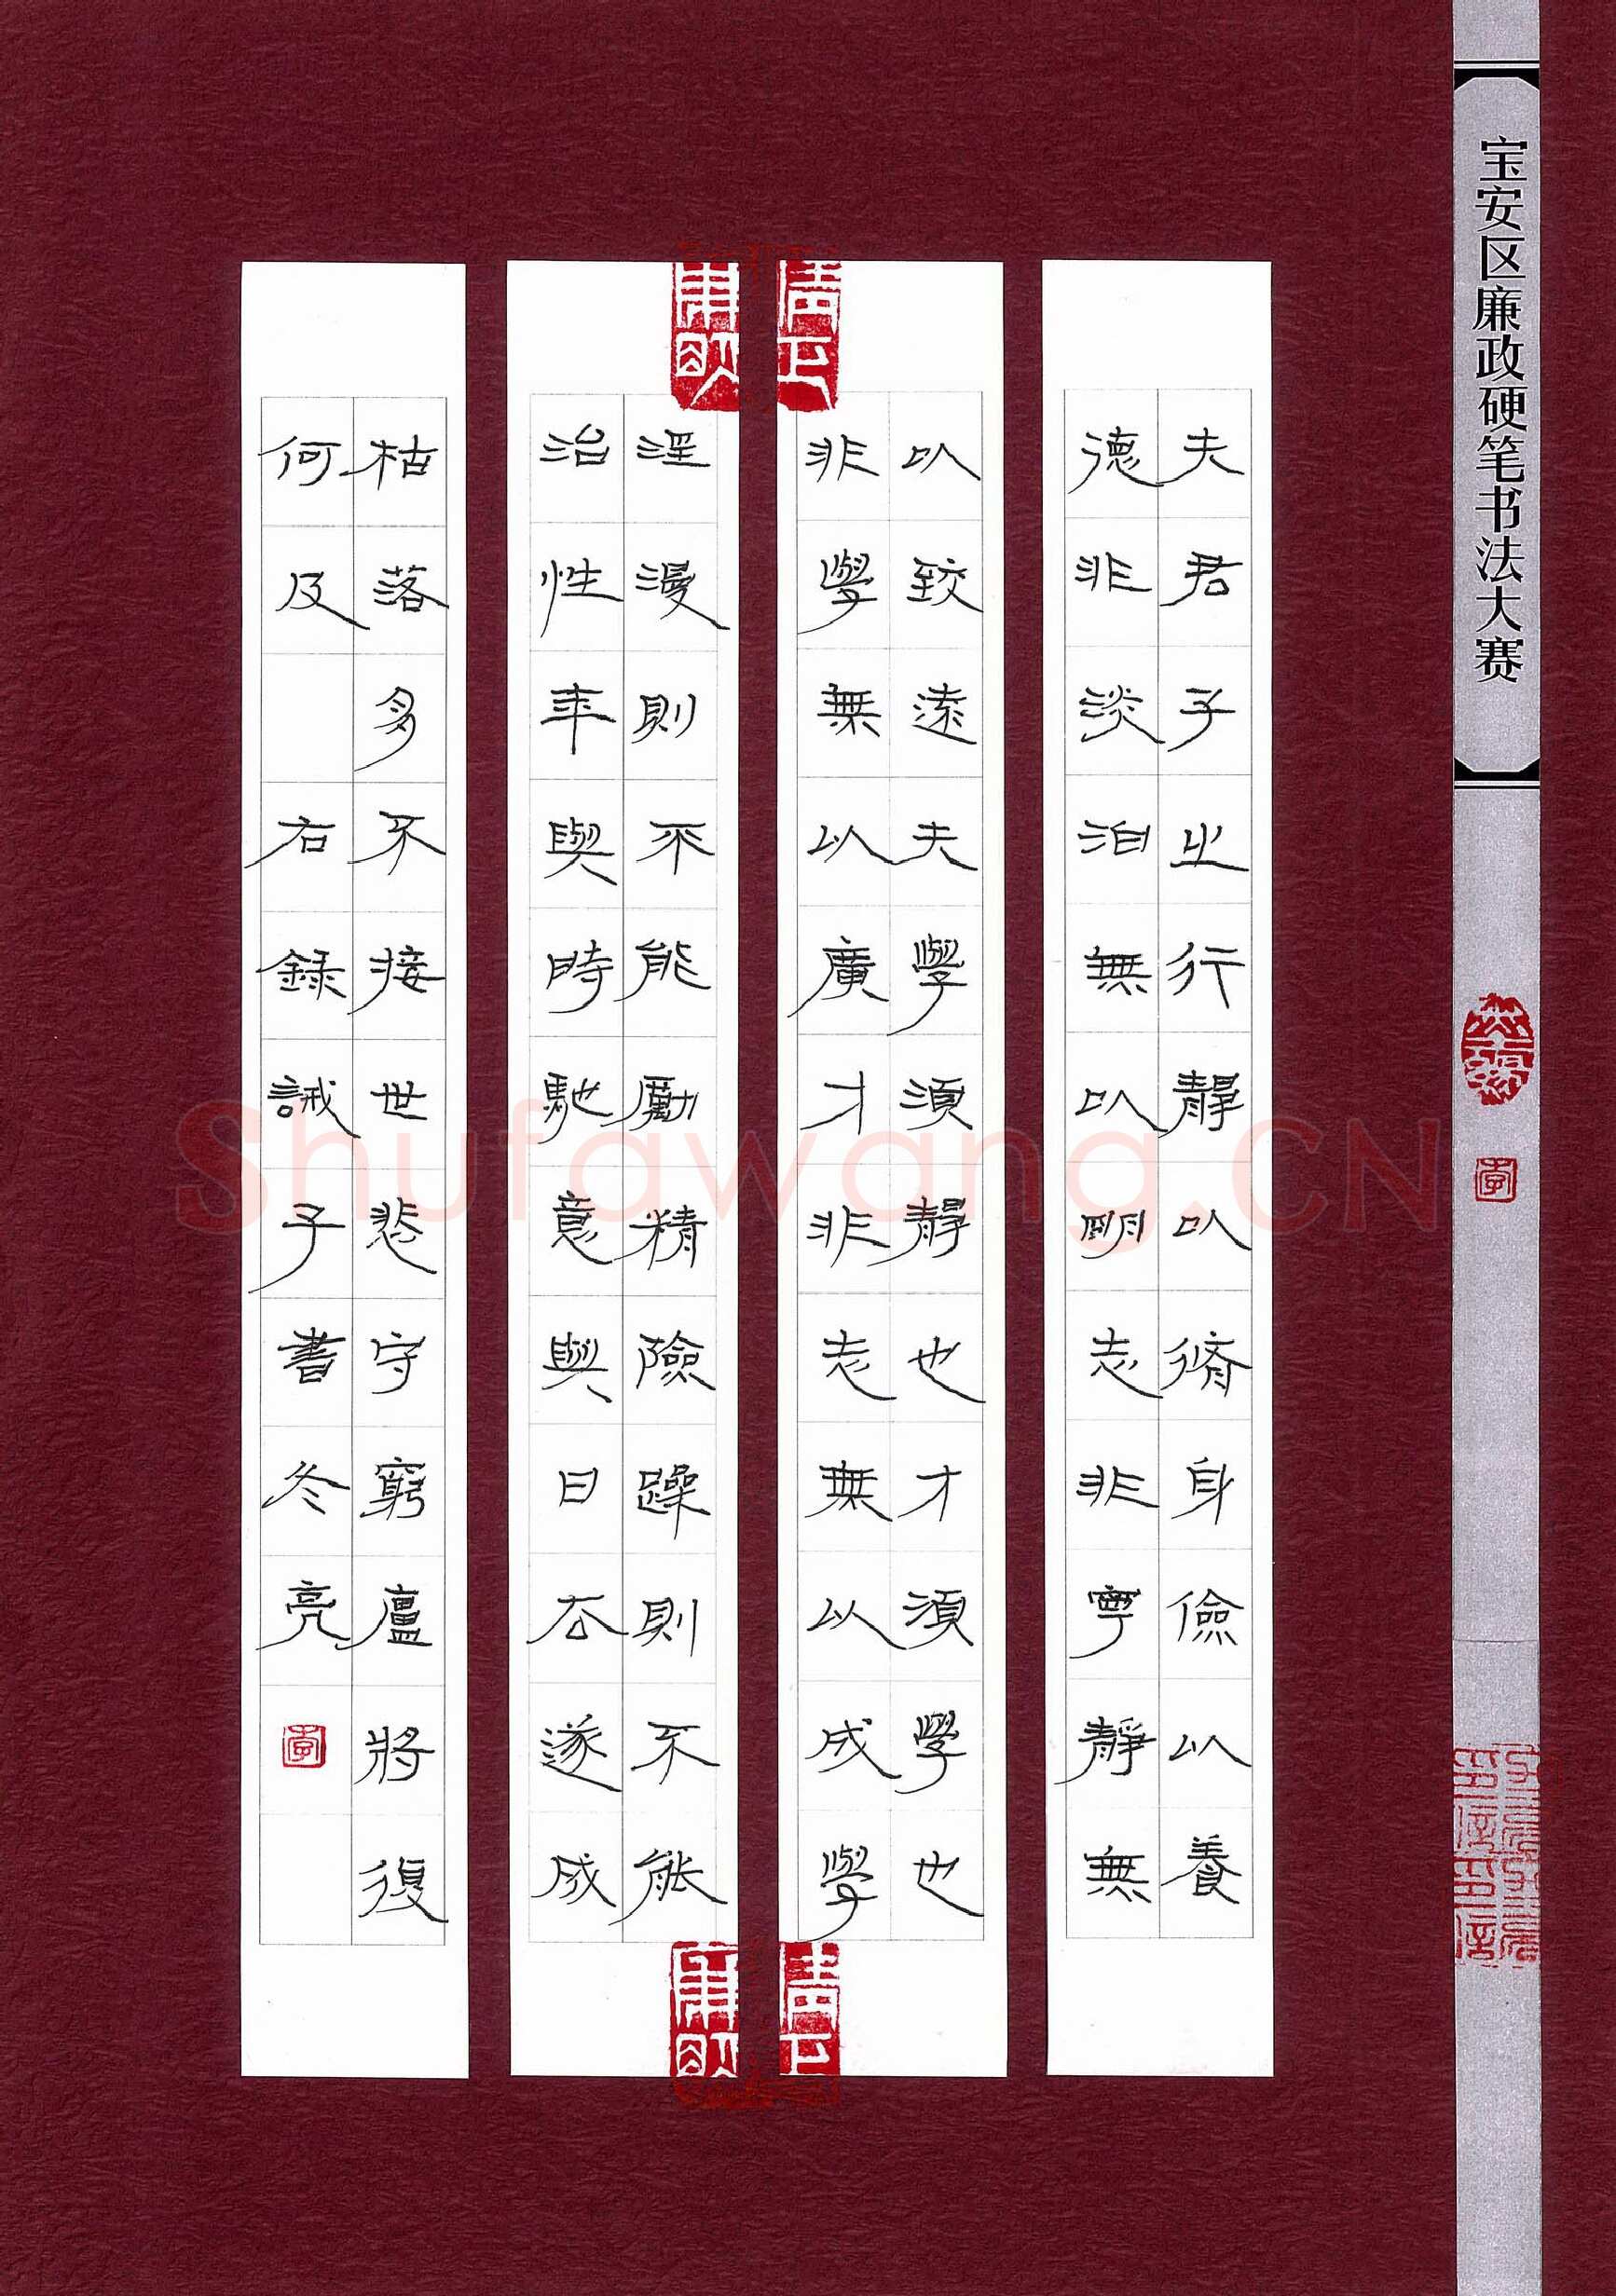 宝安区廉政硬笔书法大赛
夫君子之行靜以脩身儉以養
德非淡泊無以明志非寧靜無
以致遠夫學須靜也才須學也
非學無以廣才非志無以成學
淫漫則不能勵精險躁則不能
治性年與時馳意與日去遂成
枯落多不接世悲守窮廬將復
何及 右錄誡子書冬亮
Shufawang.CN